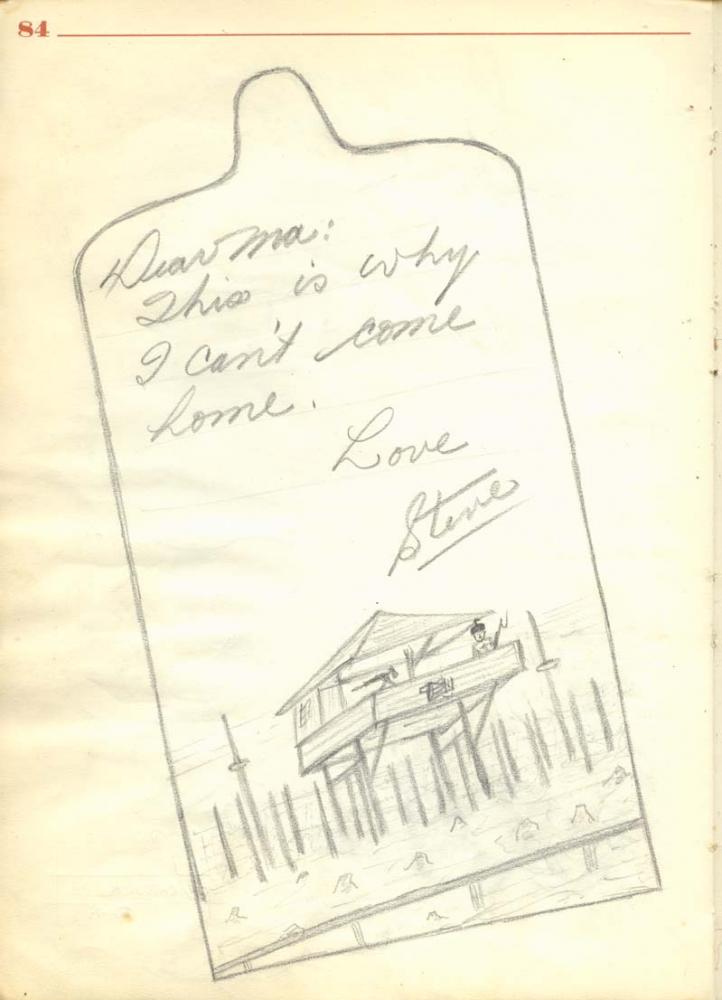 84
Dear Ma:
This is why
I can't come
home.
Love
Steve